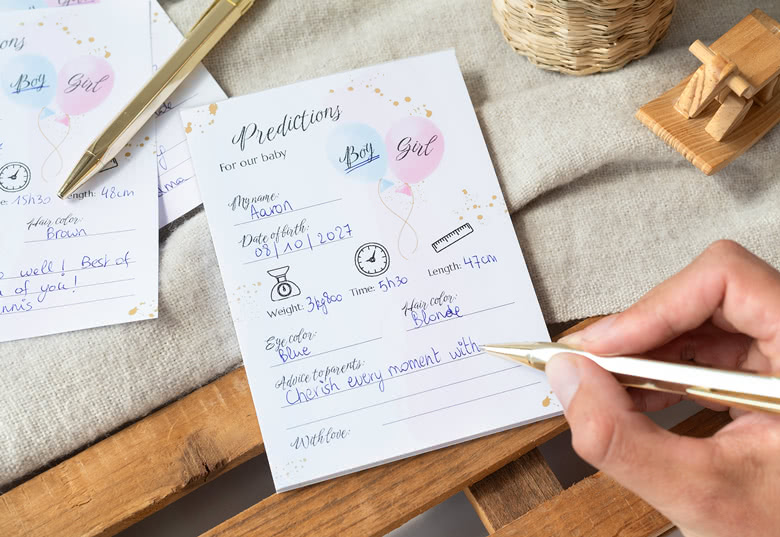 Predictions
For our baby
Boy Girl
My name:
Aaron
Date of birth:
08/10/2027
Weight: 3kg800 Time: 5h30 Length: 47cm
Eye color:
Blue
Hair color:
Blonde
Advice to parents:
Cherish every moment with
With love:
Boy Girl
15h30
Length: 48cm
Hair color:
Brown
well! Best of
of you!